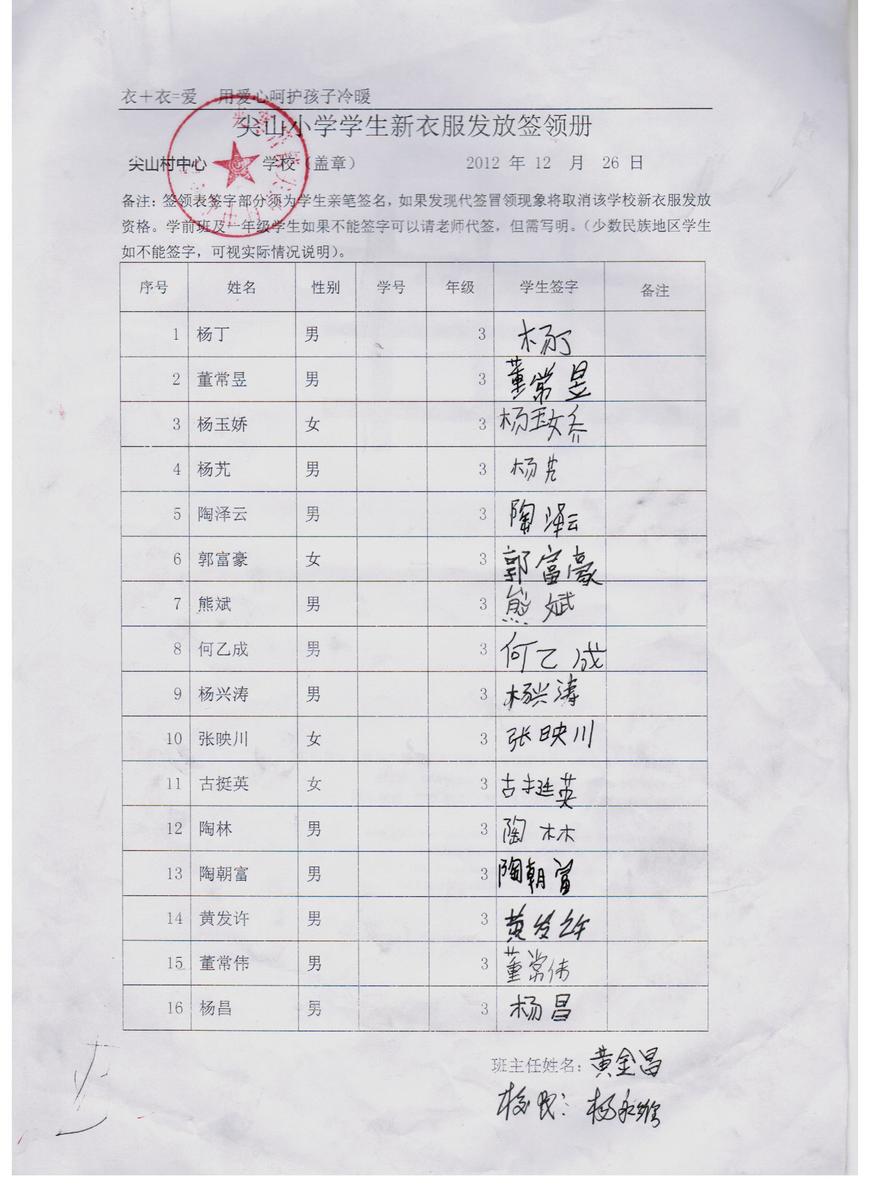 衣+衣=爱 用爱心呵护孩子冷暖
尖山小学学生新衣服发放签领册
尖山村中心 学校（盖章） 2012 年 12 月 26 日
备注：签领表签字部分须为学生亲笔签名，如果发现代签冒领现象将取消该学校新衣服发放
资格。学前班及一年级学生如果不能签字可以请老师代签，但需写明。（少数民族地区学生
如不能签字，可视实际情况说明）。
序号 姓名 性别 学号 年级 学生签字 备注
1 杨丁 男 3 杨丁
2 董常昱 男 3 董常昱
3 杨玉娇 女 3 杨玉娇
4 杨艽 男 3 杨艽
5 陶泽云 男 3 陶泽云
6 郭富豪 女 3 郭富豪
7 熊斌 男 3 熊斌
8 何乙成 男 3 何乙成
9 杨兴涛 男 3 杨兴涛
10 张映川 女 3 张映川
11 古挺英 女 3 古挺英
12 陶林 男 3 陶林
13 陶朝富 男 3 陶朝富
14 黄发许 男 3 黄发许
15 董常伟 男 3 董常伟
16 杨昌 男 3 杨昌
班主任姓名：黄金昌
杨永